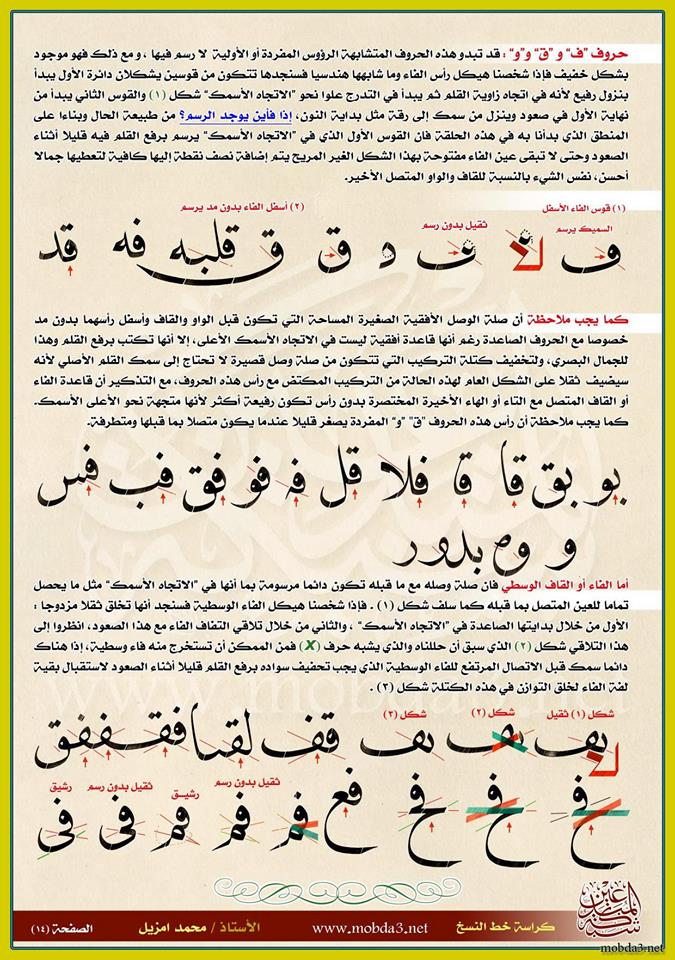 حروف "ف" و "ق" و"و" : قد تبدو هذه الحروف المتشابهة الرؤوس المفردة أو الأولية لا رسم فيها ، و مع ذلك فهو موجود
بشكل خفيف فإذا شخصنا هيكل رأس الفاء وما شابهها هندسيا فسنجدها تتكون من قوسين يشكلان دائرة الأول يبدأ
بنزول رفيع لأنه في اتجاه زاوية القلم ثم يبدأ في التدرج علوا نحو "الاتجاه الأسمك" شكل (١) والقوس الثاني يبدأ من
نهاية الأول في صعود وينزل من سمك إلى رقة مثل بداية النون، إذا فأين يوجد الرسم؟ من طبيعة الحال وبناءا على
المنطق الذي بدأنا به في هذه الحلقة فان القوس الأول الذي في "الاتجاه الأسمك" يرسم برفع القلم فيه قليلا أثناء
الصعود وحتى لا تبقى عين الفاء مفتوحة بهذا الشكل الغير المريح يتم إضافة نصف نقطة إليها كافية لتعطيها جمالا
أحسن، نفس الشيء بالنسبة للقاف والواو المتصل الأخير.
(١) قوس الفاء الأسفل
(٢) أسفل الفاء بدون مد يرسم
السميك يرسم
ثقيل بدون رسم
ف ف د ق ق قلبه فه قد
كما يجب ملاحظة أن صلة الوصل الأفقية الصغيرة المساحة التي تكون قبل الواو والقاف وأسفل رأسهما بدون مد
خصوصا مع الحروف الصاعدة رغم أنها قاعدة أفقية ليست في الاتجاه الأسمك الأعلى، إلا أنها تكتب برفع القلم وهذا
للجمال البصري، ولتخفيف كتلة التركيب التي تتكون من صلة وصل قصيرة لا تحتاج إلى سمك القلم الأصلي لأنه
سيضيف ثقلا على الشكل العام لهذه الحالة من التركيب المكتض مع رأس هذه الحروف، مع التذكير أن قاعدة الفاء
أو القاف المتصل مع التاء أو الهاء الأخيرة المختصرة بدون رأس تكون رفيعة أكثر لأنها متجهة نحو الأعلى الأسمك.
كما يجب ملاحظة أن رأس هذه الحروف "ق" "و" المفردة يصغر قليلا عندما يكون متصلا بما قبلها ومتطرفة.
بو بق قا قا فلا قل فه فو فق فب فس
و وه بدور
أما الفاء أو القاف الوسطي فان صلة وصله مع ما قبله تكون دائما مرسومة بما أنها في "الاتجاه الأسمك" مثل ما يحصل
تماما للعين المتصل بما قبله كما سلف شكل (١) . فإذا شخصنا هيكل الفاء الوسطية فسنجد أنها تخلق ثقلا مزدوجا :
الأول من خلال بدايتها الصاعدة في "الاتجاه الأسمك" ، والثاني من خلال تلاقي التفاف الفاء مع هذا الصعود، انظروا إلى
هذا التلاقي شكل (٢) الذي سبق أن حللناه والذي يشبه حرف (X) فمن الممكن أن تستخرج منه فاء وسطية، إذا هناك
دائما سمك قبل الاتصال المرتفع للفاء الوسطية الذي يجب تخفيف سواده برفع القلم قليلا أثناء الصعود لاستقبال بقية
لفة الفاء لخلق التوازن في هذه الكتلة شكل (٣) .
شكل (١) ثقيل
شكل (٢)
شكل (٣)
يف يف يف قف لقبا فقففق
ثقيل بدون رسم
رشيق
ثقيل بدون رسم
رشيق
فح فح فح فع فم فم فم فى فى
شبكة المبدعين
كراسة خط النسخ
www.mobda3.net
الأستاذ / محمد امزيل
الصفحة (١٤)
www.mobda3.net
mobda3.net